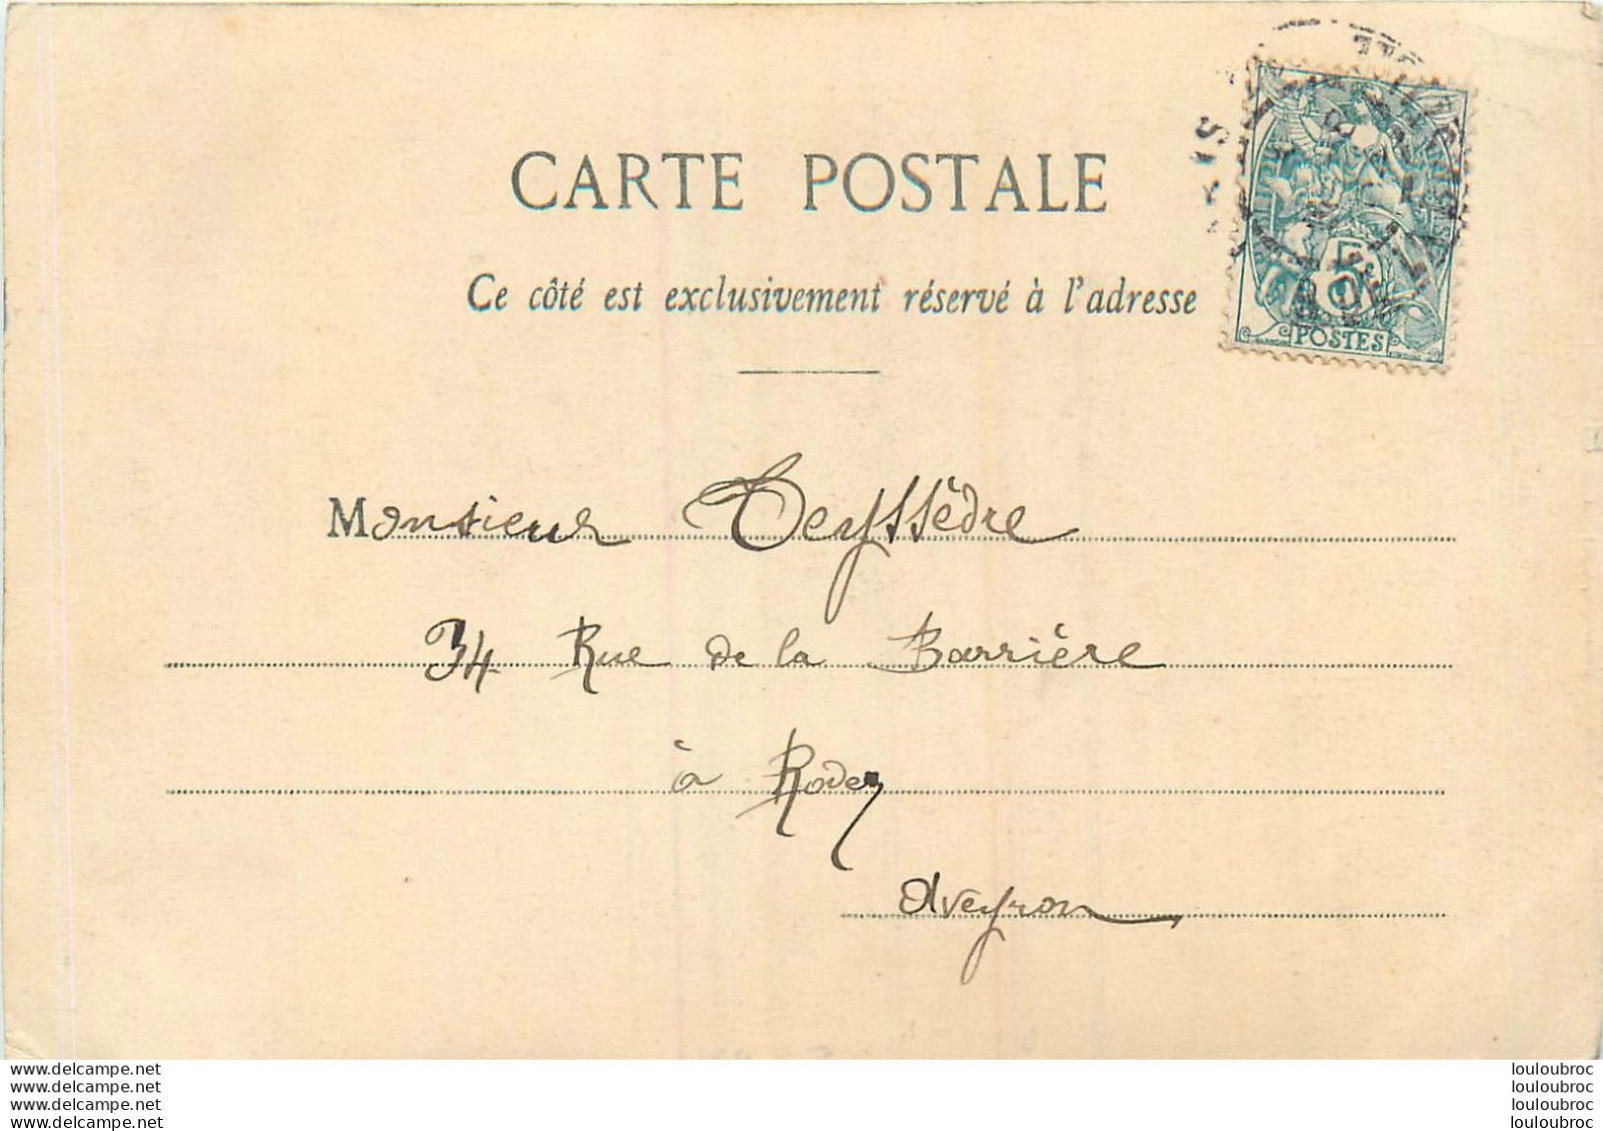 CARTE POSTALE
Ce côté est exclusivement réservé à l'adresse
5
POSTES
Monsieur Teyssèdre
34 Rue de la Barrière
à Rodez
Aveyron
www.delcampe.net
www.delcampe.net
www.delcampe.net
www.delcampe.net
louloubroc
louloubroc
louloubroc
louloubroc